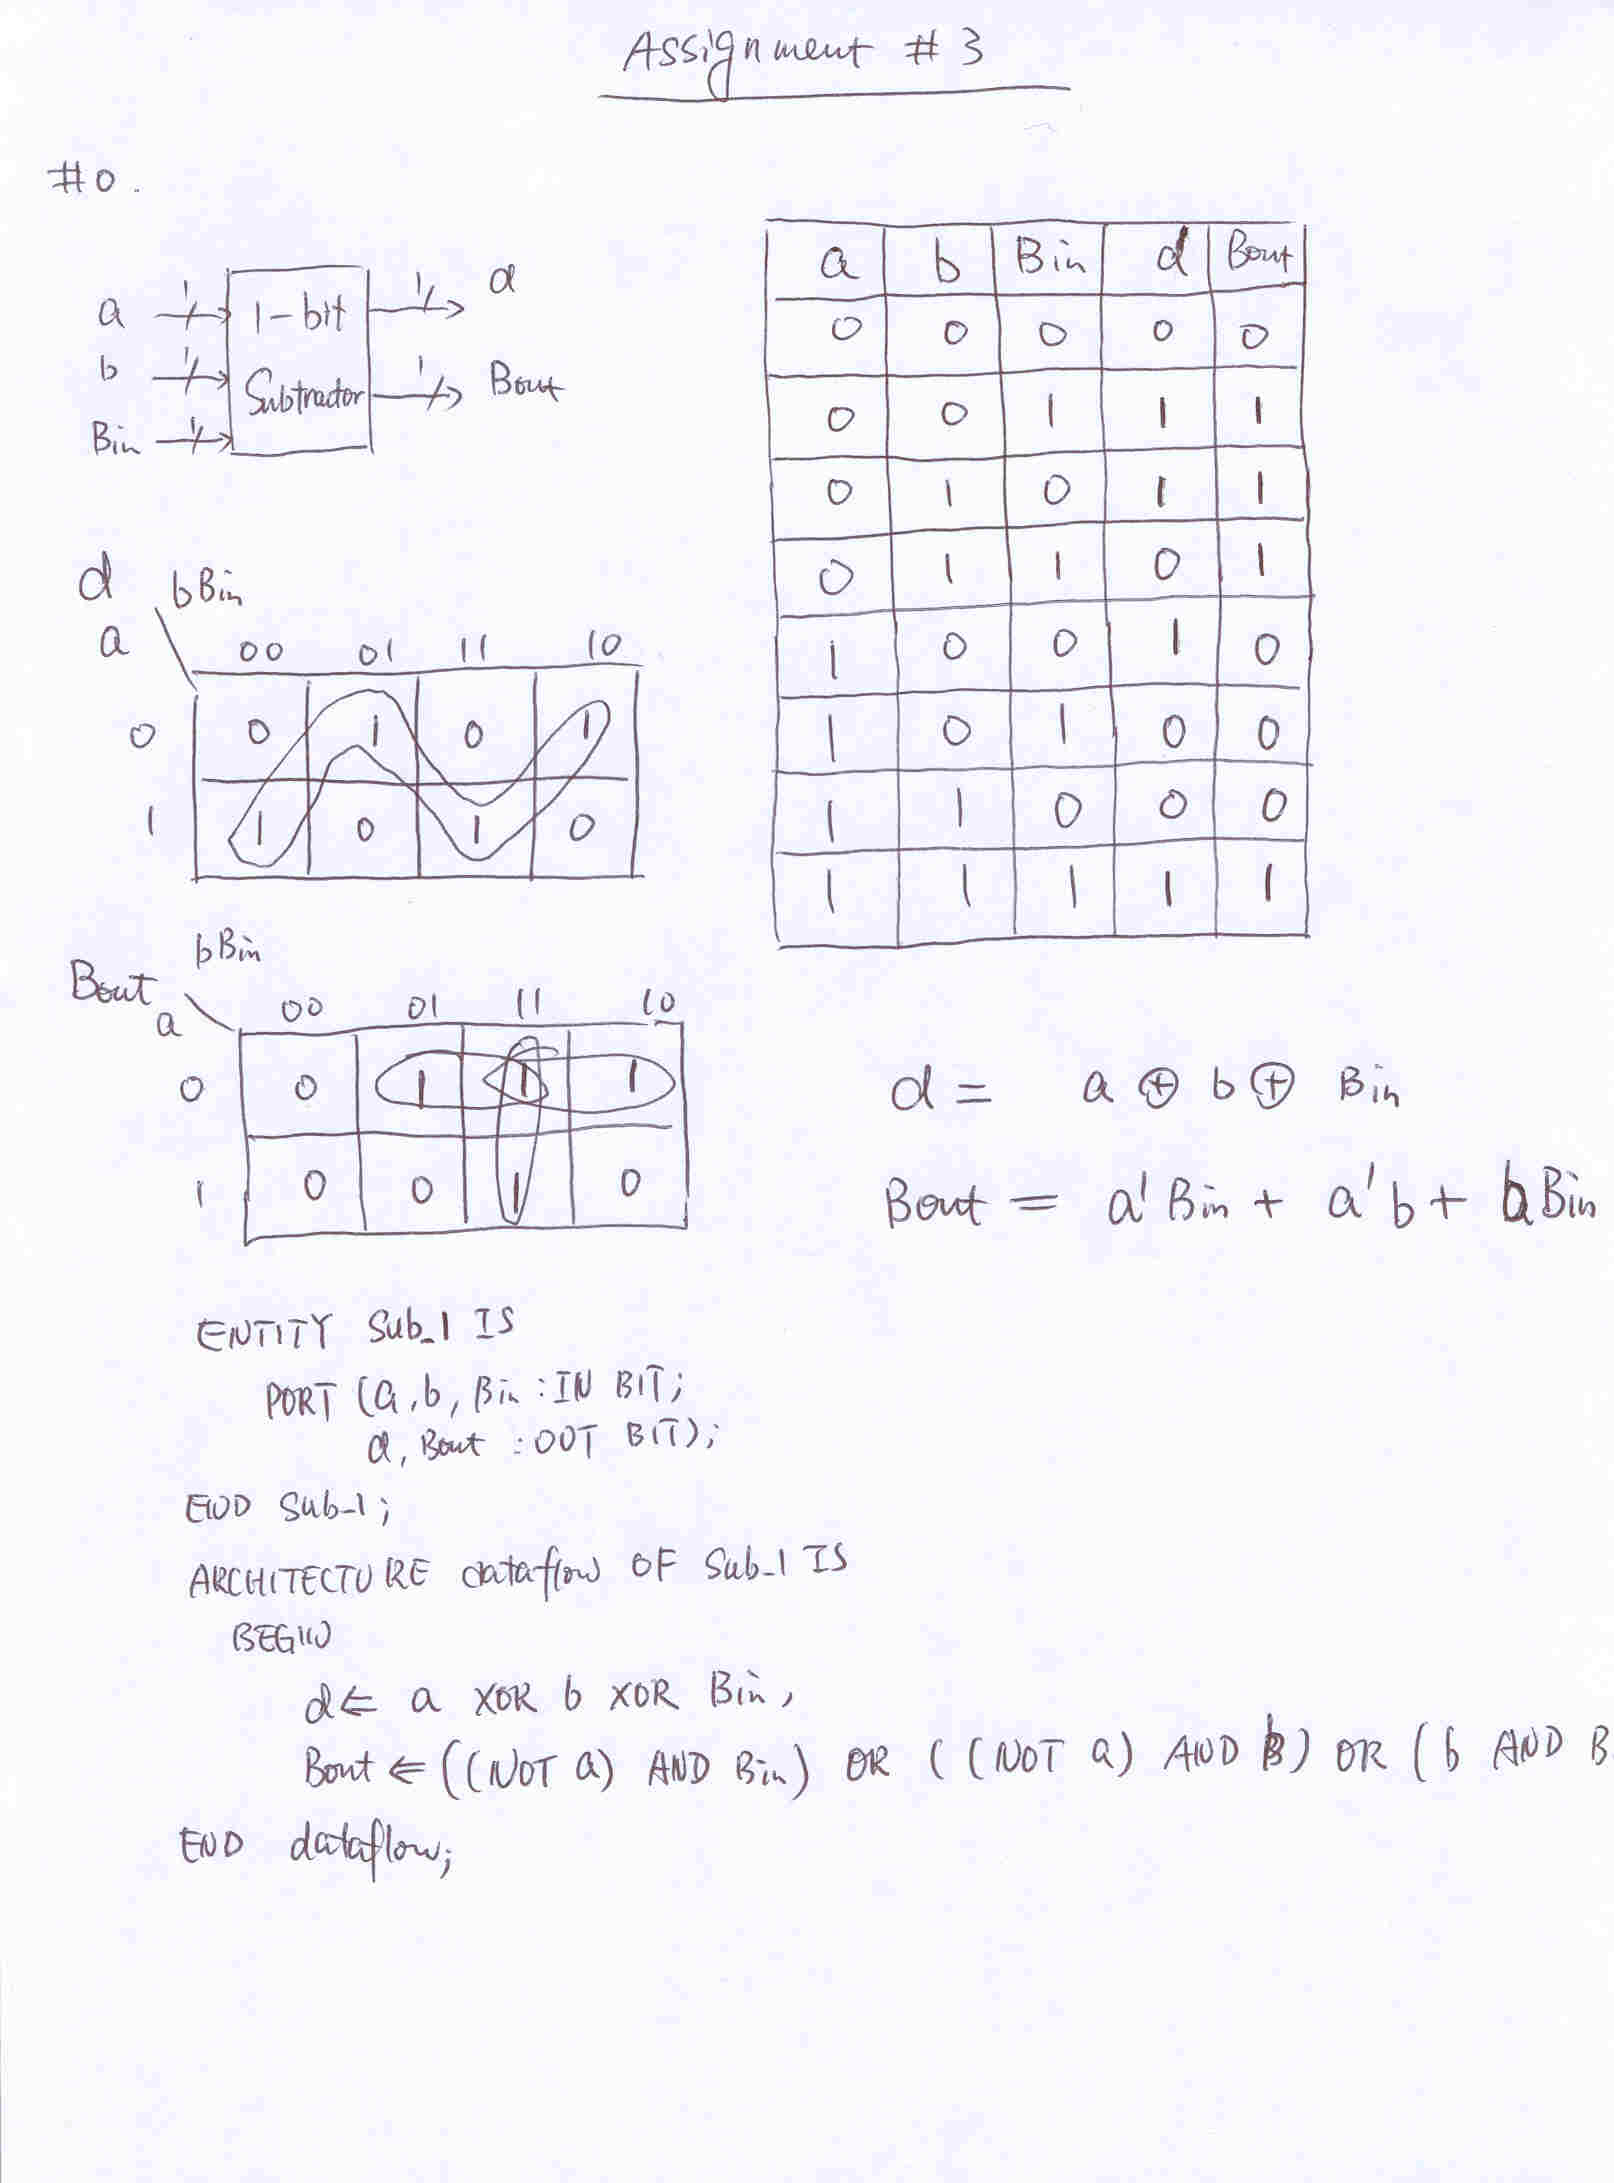 Assignment # 3
#0.
a 1 1-bit 1 d
b 1 Subtractor 1 Bout
Bin 1
a b Bin d Bout
0 0 0 0 0
0 0 1 1 1
0 1 0 1 1
0 1 1 0 1
1 0 0 1 0
1 0 1 0 0
1 1 0 0 0
1 1 1 1 1
d bBin
a 00 01 11 10
0 0 1 0 1
1 1 0 1 0
bBin
Bout
a 00 01 11 10
0 0 1 1 1
1 0 0 1 0
d = a ⊕ b ⊕ Bin
Bout = a' Bin + a' b + b Bin
ENTITY Sub_1 IS
PORT (a, b, Bin : IN BIT;
d, Bout : OUT BIT);
END Sub_1;
ARCHITECTURE dataflow OF Sub_1 IS
BEGIN
d <= a XOR b XOR Bin,
Bout <= ((NOT a) AND Bin) OR ((NOT a) AND b) OR (b AND B
END dataflow;